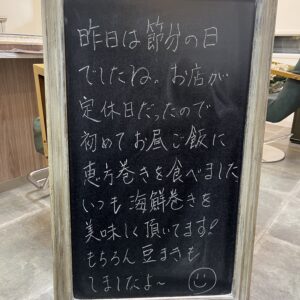 昨日は節分の日
でしたね。お店が
定休日だったので
初めてお昼ご飯に
恵方巻きを食べました
いつも海鮮巻きを
美味しく頂いてます!
もちろん豆まきも
しましたよ～